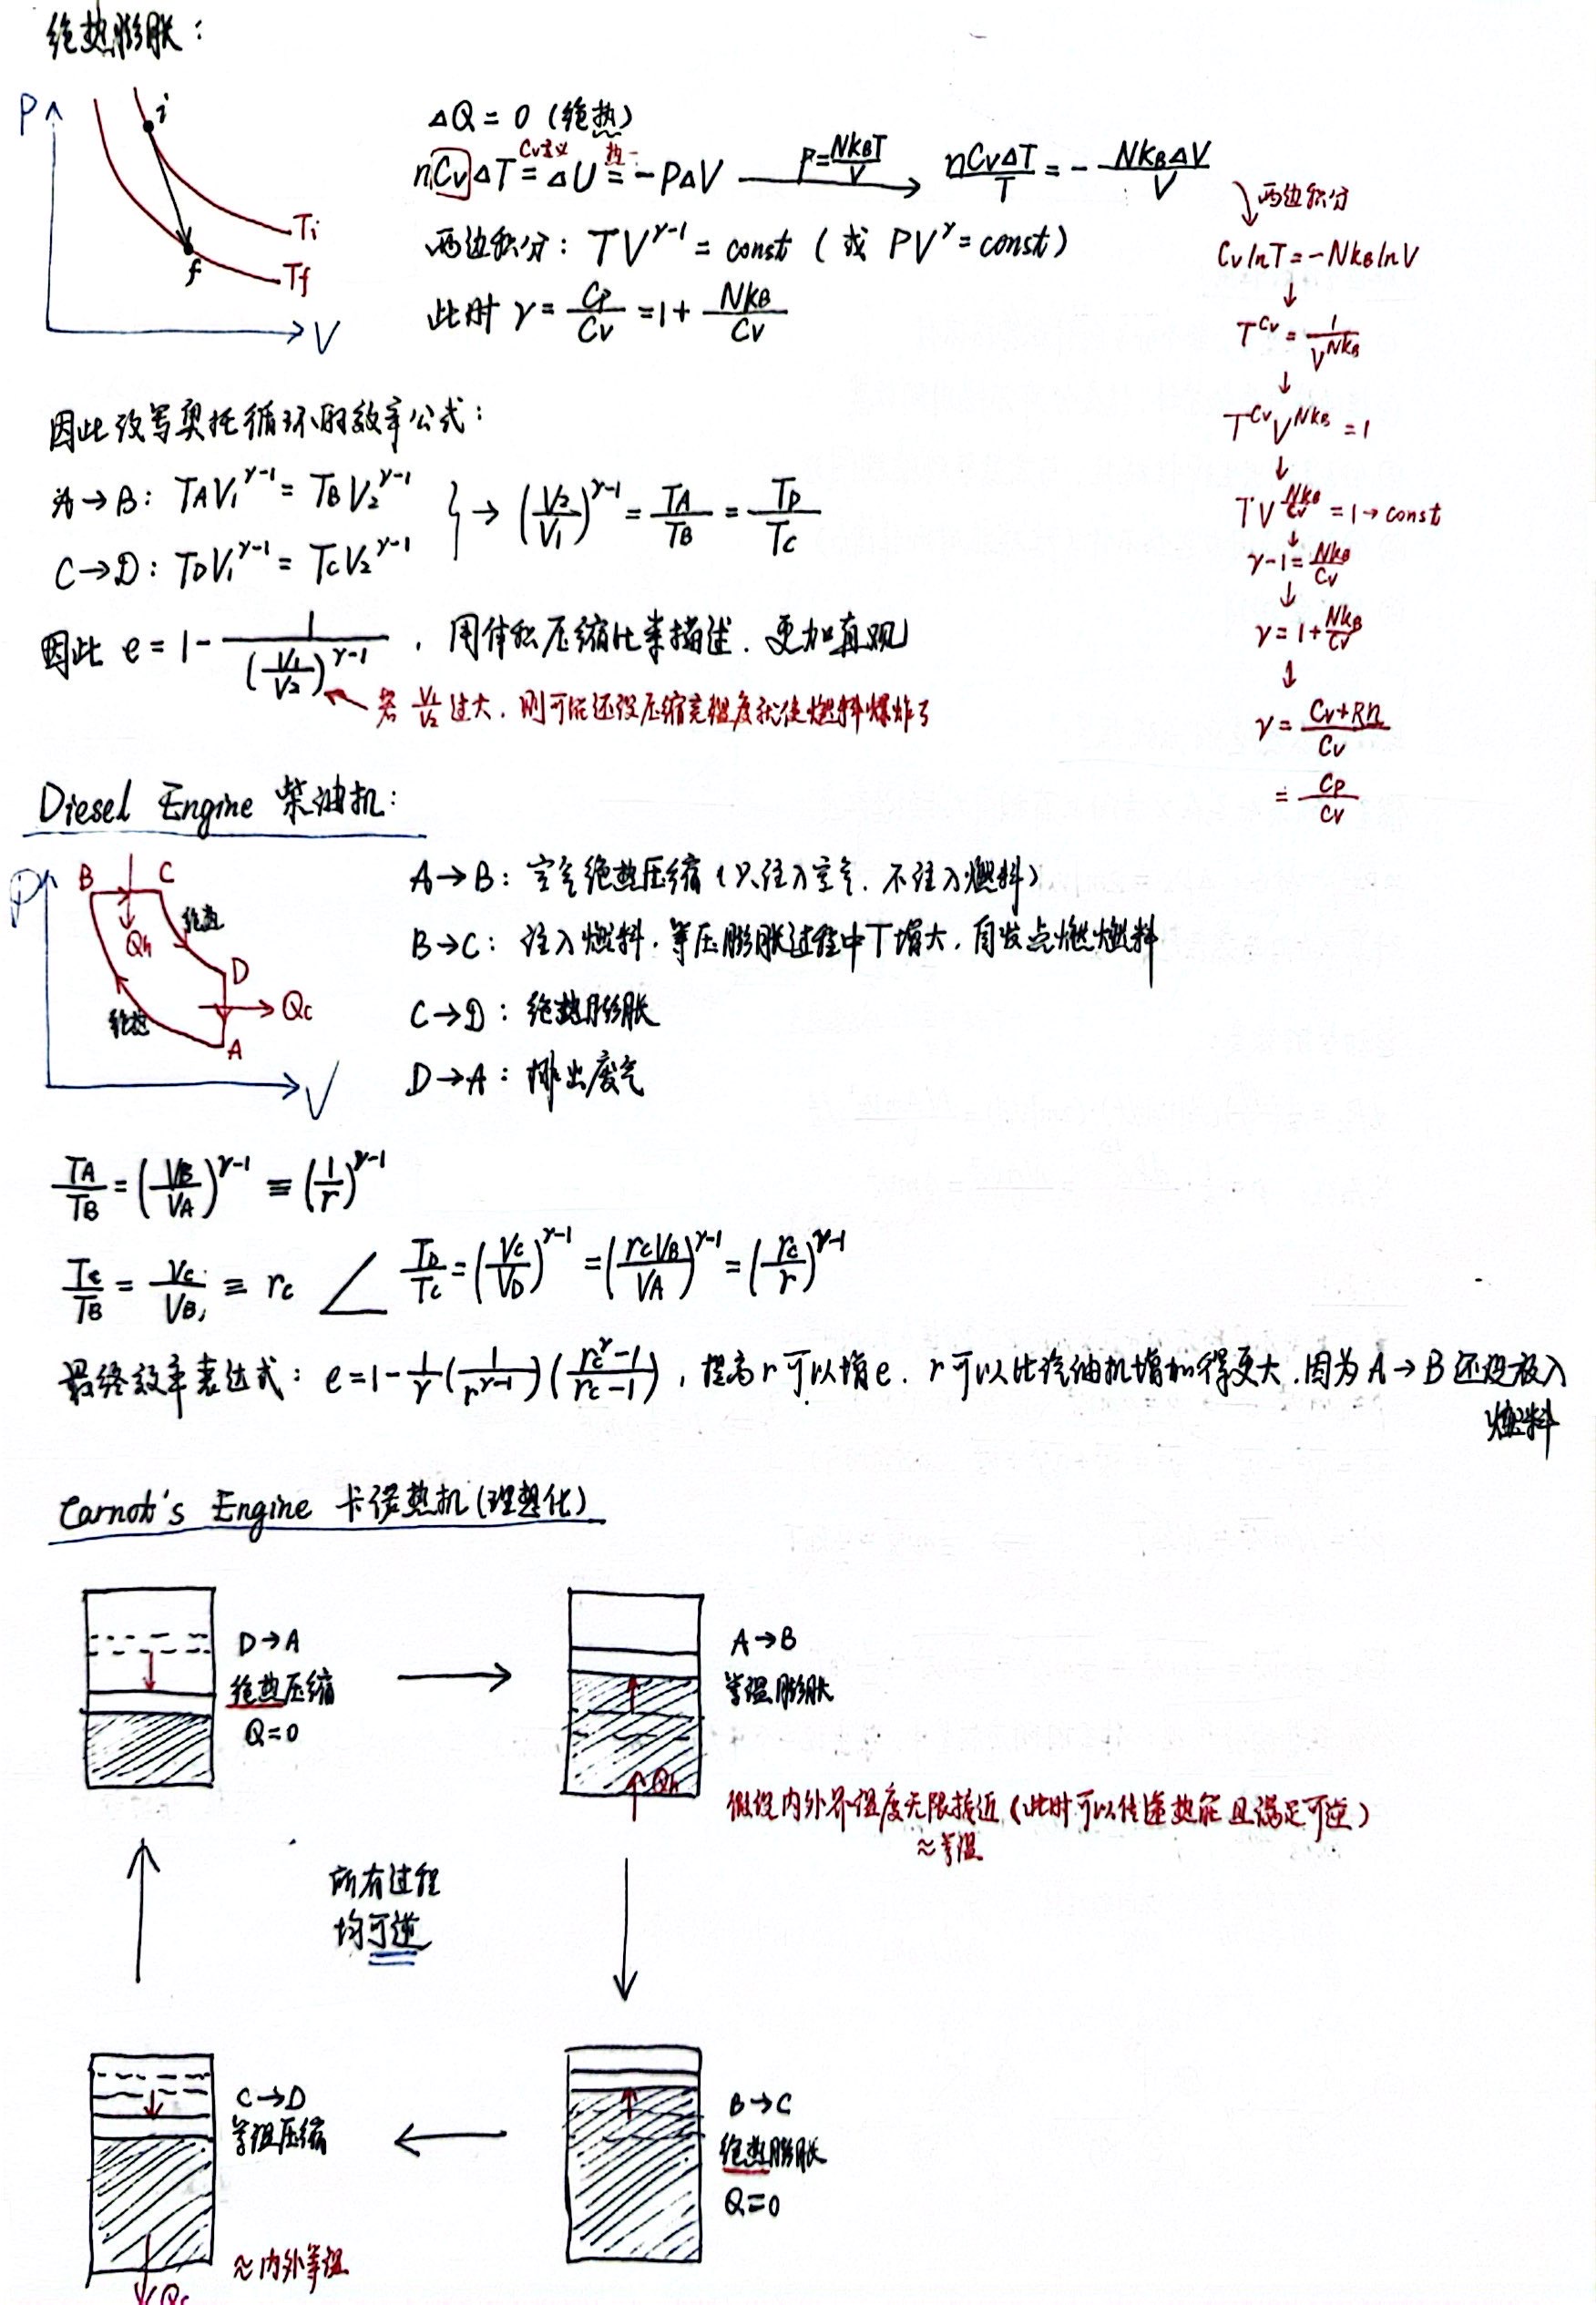 绝热膨胀：
P
i
Ti
f
Tf
V
ΔQ = 0 (绝热)
Cv定义 热一
nCvΔT = ΔU = -PΔV
P=NkBT/V
nCvΔT/T = - NkBΔV/V
两边积分：TV^γ-1 = const ( 或 PV^γ = const )
此时 γ = CP/CV = 1 + NkB/CV
两边积分
CvlnT = -NkBlnV
↓
T^Cv = 1/V^NkB
↓
T^Cv V^NkB = 1
↓
TV^NkB/Cv = 1 → const
↓
γ-1 = NkB/Cv
↓
γ = 1+NkB/Cv
↓
γ = Cv+Rn/Cv
= CP/CV
因此改写奥托循环的效率公式：
A → B： TAV1^γ-1 = TBV2^γ-1
C → D： TDV1^γ-1 = TCV2^γ-1
} → (V2/V1)^γ-1 = TA/TB = TD/TC
因此 e = 1 - 1/(V1/V2)^γ-1 ，用体积压缩比来描述．更加直观
若 V1/V2 过大．则可能还没压缩完温度就使燃料爆炸了
Diesel Engine 柴油机：
P
B
C
Qh
绝热
D
Qc
绝热
A
V
A → B： 空气绝热压缩 (只注入空气．不注入燃料)
B → C： 注入燃料．等压膨胀过程中T增大．自发点燃燃料
C → D： 绝热膨胀
D → A： 排出废气
TA/TB = (VB/VA)^γ-1 ≡ (1/r)^γ-1
TC/TB = VC/VB ≡ rc
TD/TC = (VC/VD)^γ-1 = (rcVB/VA)^γ-1 = (rc/r)^γ-1
最终效率表达式： e = 1 - 1/γ (1/r^γ-1) (rc^γ-1/rc-1)，提高 r 可以增 e．r 可以比汽油机增加得更大．因为 A → B 还没放入
燃料
Carnot's Engine 卡诺热机 (理想化)
D → A
绝热压缩
Q = 0
A → B
等温膨胀
Qh
假设内外界温度无限接近 (此时可以传递热能且满足可逆)
≈等温
所有过程
均可逆
C → D
等温压缩
≈内外等温
Qc
B → C
绝热膨胀
Q = 0